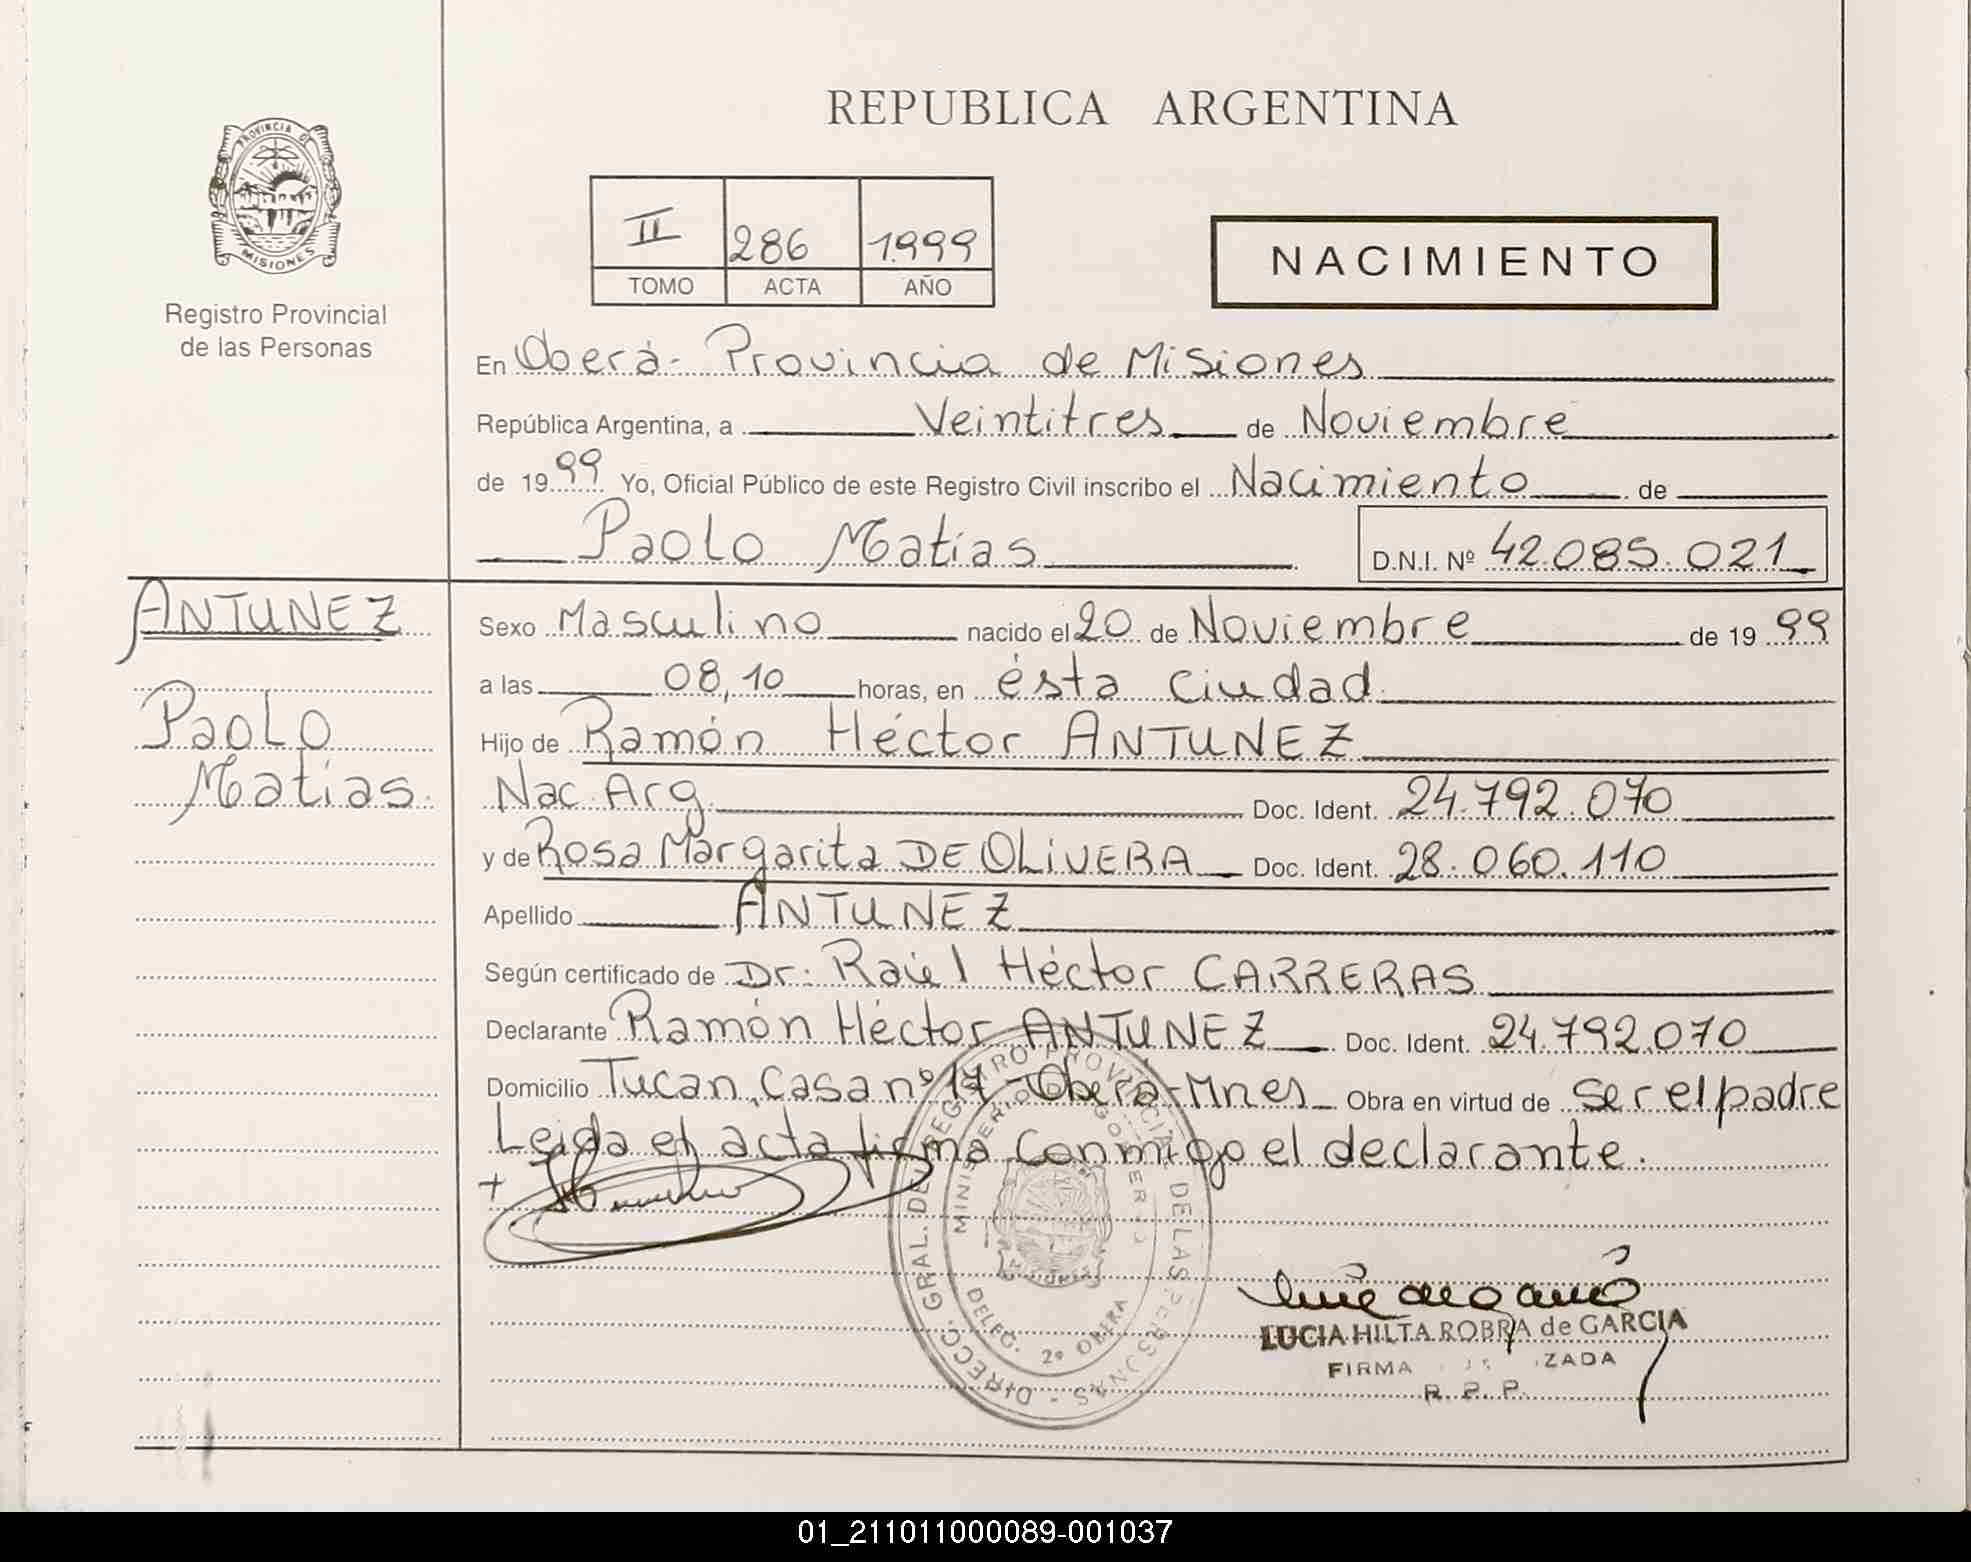 REPUBLICA ARGENTINA
PROVINCIA DE
MISIONES
Registro Provincial
de las Personas
II 286 1999
TOMO ACTA AÑO
NACIMIENTO
En Oberá- Provincia de Misiones
República Argentina, a Veintitres de Noviembre
de 1999 Yo, Oficial Público de este Registro Civil inscribo el Nacimiento de
Paolo Matías D.N.I. Nº 42.085.021
ANTUNEZ
Paolo
Matías.
Sexo Masculino nacido el 20 de Noviembre de 1999
a las 08,10 horas, en ésta ciudad.
Hijo de Ramón Héctor ANTUNEZ
Nac. Arg. Doc. Ident. 24.792.070
y de Rosa Margarita DE OLIVERA Doc. Ident. 28.060.110
Apellido ANTUNEZ
Según certificado de Dr. Raúl Héctor CARRERAS
Declarante Ramón Héctor ANTUNEZ Doc. Ident. 24.792.070
Domicilio Tucan, Casa nº 17 - Oberá-Mnes Obra en virtud de ser el padre
Leida el acta firma conmigo el declarante.
DIRECC. GRAL. DEL REGISTRO PROVINCIAL DE LAS PERSONAS -
MINISTERIO DE GOBIERNO
DELEG. 2º OBERA
LUCIA HILTA ROBRA de GARCIA
FIRMA
R. P. P.
01_211011000089-001037